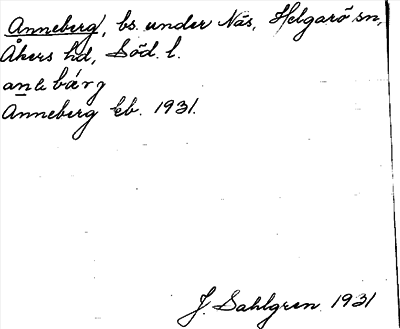 Anneberg, bs. under Näs, Helgarö sn,
Åkers hd, Söd. l.
Anneberg kb. 1931.
J. Sahlgren 1931